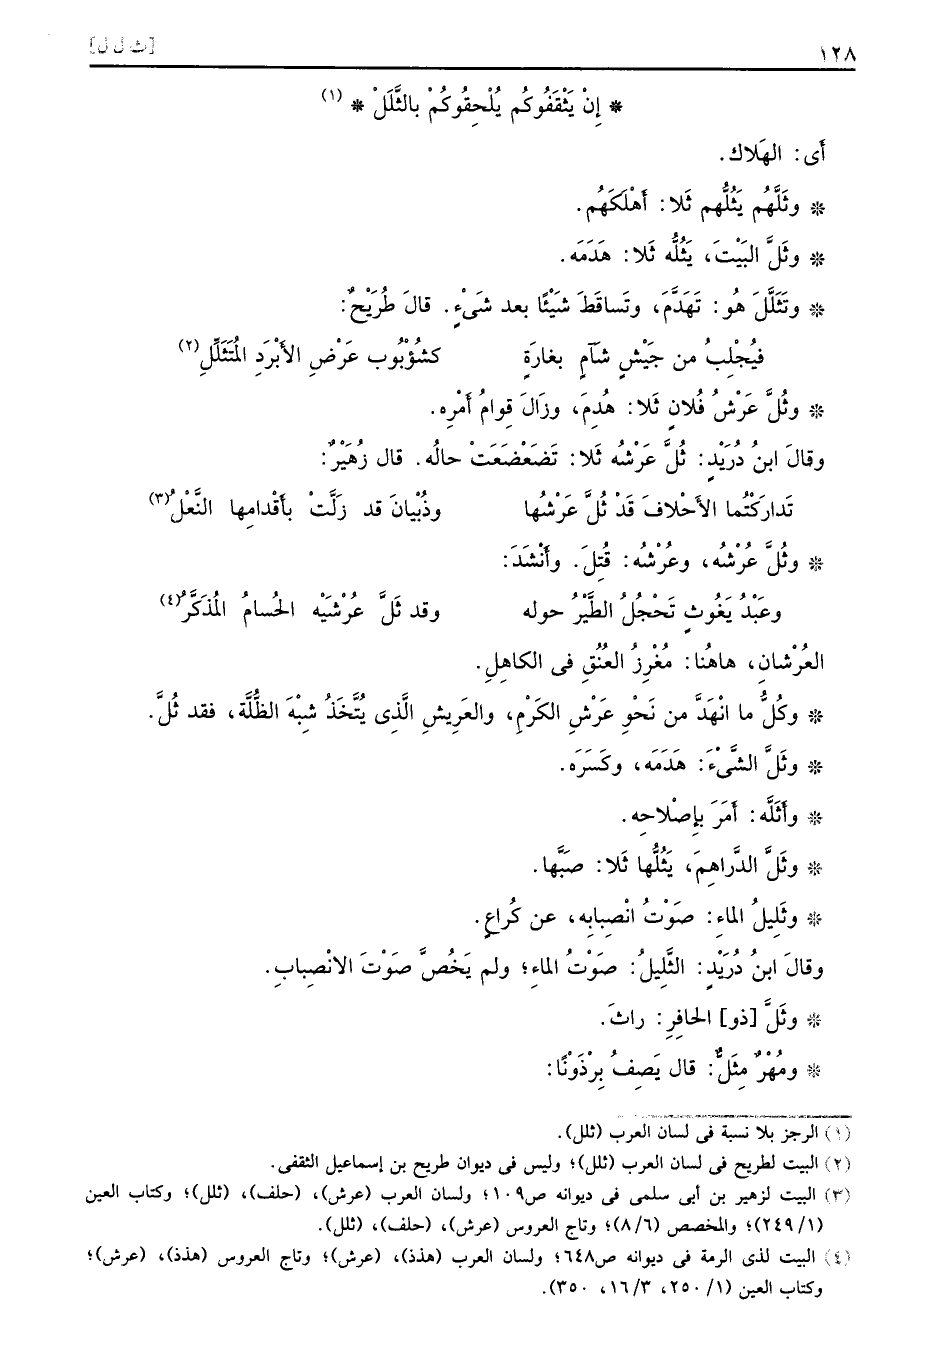 ١٢٨
[ث ل ل]
* إِنْ يَثْقَفُوكُم يُلْحِقُوكُمْ بالثَّلَلْ * (١)
أى: الهَلاك.
* وثَلَّهُم يَثُلُّهم ثَلا: أَهْلَكَهُم.
* وثَلَّ البَيْتَ، يَثُلُّه ثَلا: هَدَمَه.
* وتَثَلَّلَ هُو: تَهَدَّمَ، وتَساقَطَ شَيْئًا بعد شَىْءٍ. قالَ طُرَيْحٌ:
فيُجْلِبُ من جَيْشٍ شَآمٍ بغارَةٍ كشُؤْبُوب عَرْضِ الأَبْرَدِ المُتَثَلِّلِ(٢)
* وثُلَّ عَرْشُ فُلانٍ ثَلا: هُدِمَ، وزَالَ قِوامُ أَمْرِه.
وقالَ ابنُ دُرَيْدٍ: ثُلَّ عَرْشُه ثَلا: تَضَعْضَعَتْ حالُه. قال زُهَيْرٌ:
تَدارَكْتُما الأَحْلافَ قَدْ ثُلَّ عَرْشُها وذُبْيانَ قد زَلَّتْ بأَقْدامِها النَّعْلُ(٣)
* وثُلَّ عُرْشُه، وعُرْشُه: قُتِلَ. وأَنْشَدَ:
وعَبْدُ يَغُوثٍ تَحْجُلُ الطَّيْرُ حوله وقد ثَلَّ عُرْشَيْه الحُسامُ المُذَكَّرُ(٤)
العُرْشانِ، هاهُنا: مُغْرِزُ العُنُقِ فى الكاهِلِ.
* وكُلُّ ما انْهَدَّ من نَحْوِ عَرْشِ الكَرْمِ، والعَرِيشِ الَّذِى يُتَّخَذُ شِبْهَ الظُّلَّة، فقد ثُلَّ.
* وثَلَّ الشَّىْءَ: هَدَمَه، وكَسَرَه.
* وأَثَلَّه: أَمَرَ بإِصْلاحِه.
* وثَلَّ الدَّراهِمَ، يَثُلُّها ثَلا: صَبَّها.
* وثَلِيلُ الماءِ: صَوْتُ انْصِبابِه، عن كُراعٍ.
وقالَ ابنُ دُرَيْدٍ: الثَّلِيلُ: صَوْتُ الماءِ؛ ولم يَخُصَّ صَوْتَ الانْصِبابِ.
* وثَلَّ [ذو] الحافِرِ: راثَ.
* ومُهْرٌ مِثَلٌّ: قال يَصِفُ بِرْذَوْنًا:
(١) الرجز بلا نسبة فى لسان العرب (ثلل).
(٢) البيت لطريح فى لسان العرب (ثلل)؛ وليس فى ديوان طريح بن إسماعيل الثقفى.
(٣) البيت لزهير بن أبى سلمى فى ديوانه ص١٠٩؛ ولسان العرب (عرش)، (حلف)، (ثلل)؛ وكتاب العين
(١/٢٤٩)؛ والمخصص (٨/٦)؛ وتاج العروس (عرش)، (حلف)، (ثلل).
(٤) البيت لذى الرمة فى ديوانه ص٦٤٨؛ ولسان العرب (هذذ)، (عرش)؛ وتاج العروس (هذذ)، (عرش)؛
وكتاب العين (١/ ٢٥٠، ١٦/٣، ٣٥٠).